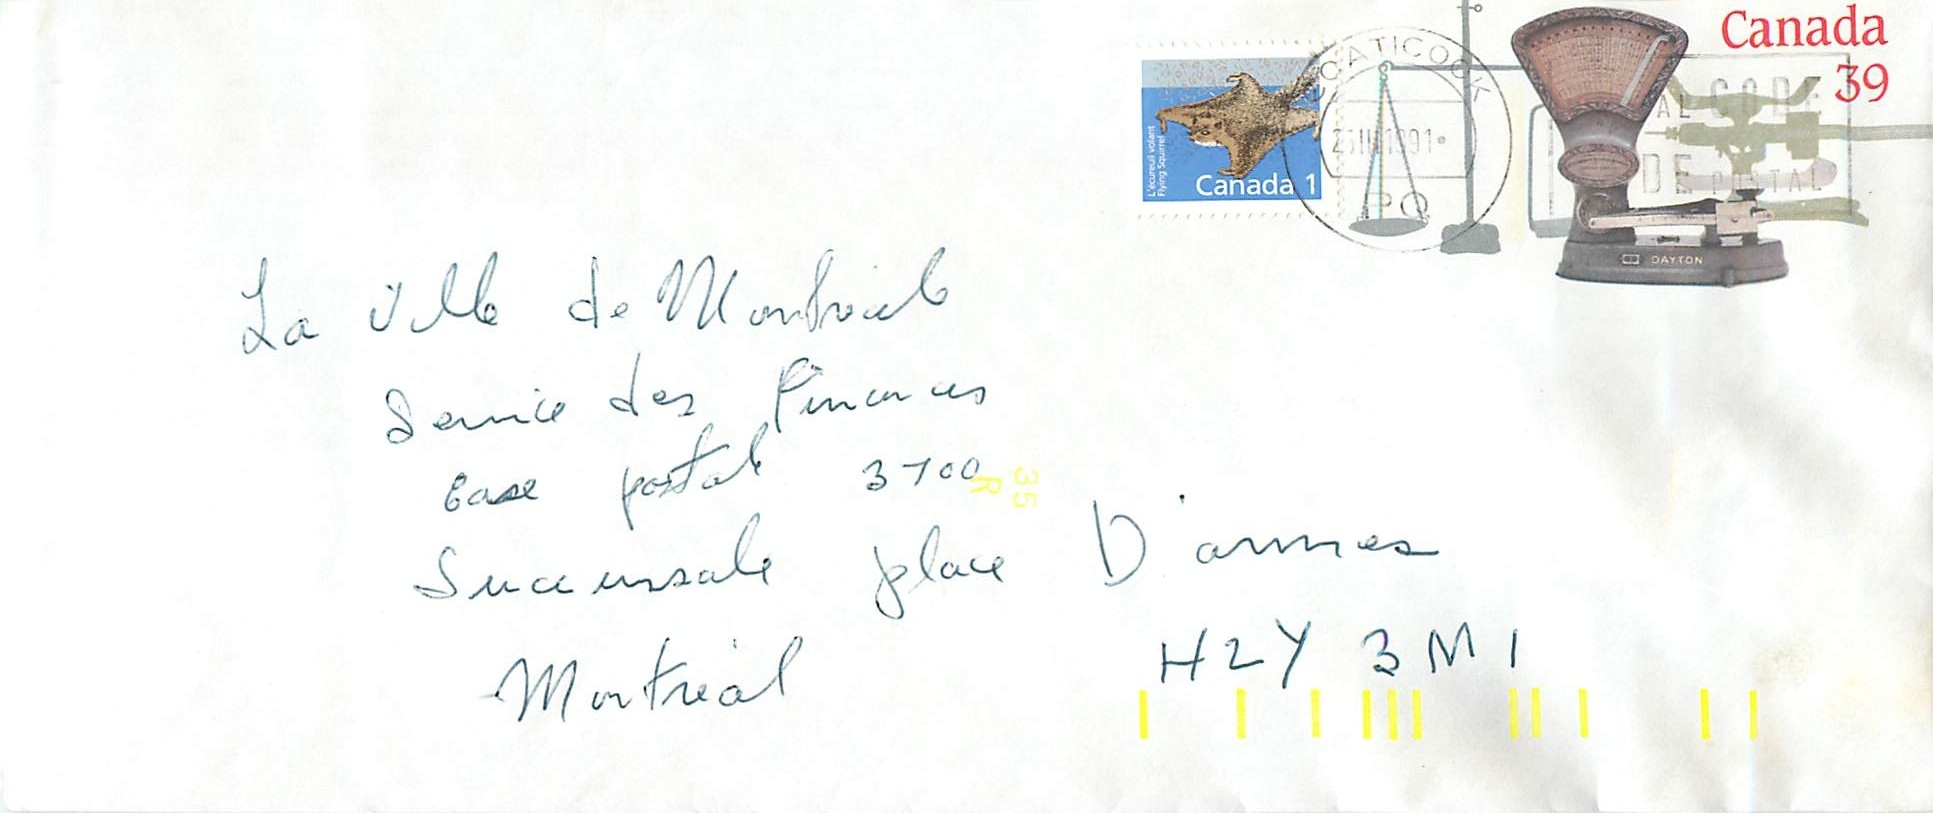 Canada
39
L'écureuil volant
Flying Squirrel
Canada 1
COATICOOK
1991
PQ
POSTAL CODE
CODE POSTAL
DAYTON
La Ville de Montréal
Service des Finances
Case postal 3700
35
R
Succursale place D'armes
Montréal
H2Y 3M1